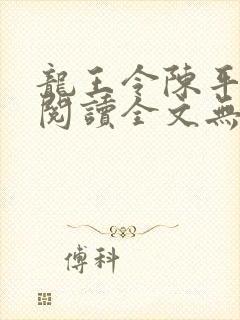 龍王令陳平
閱讀全文無
傅科